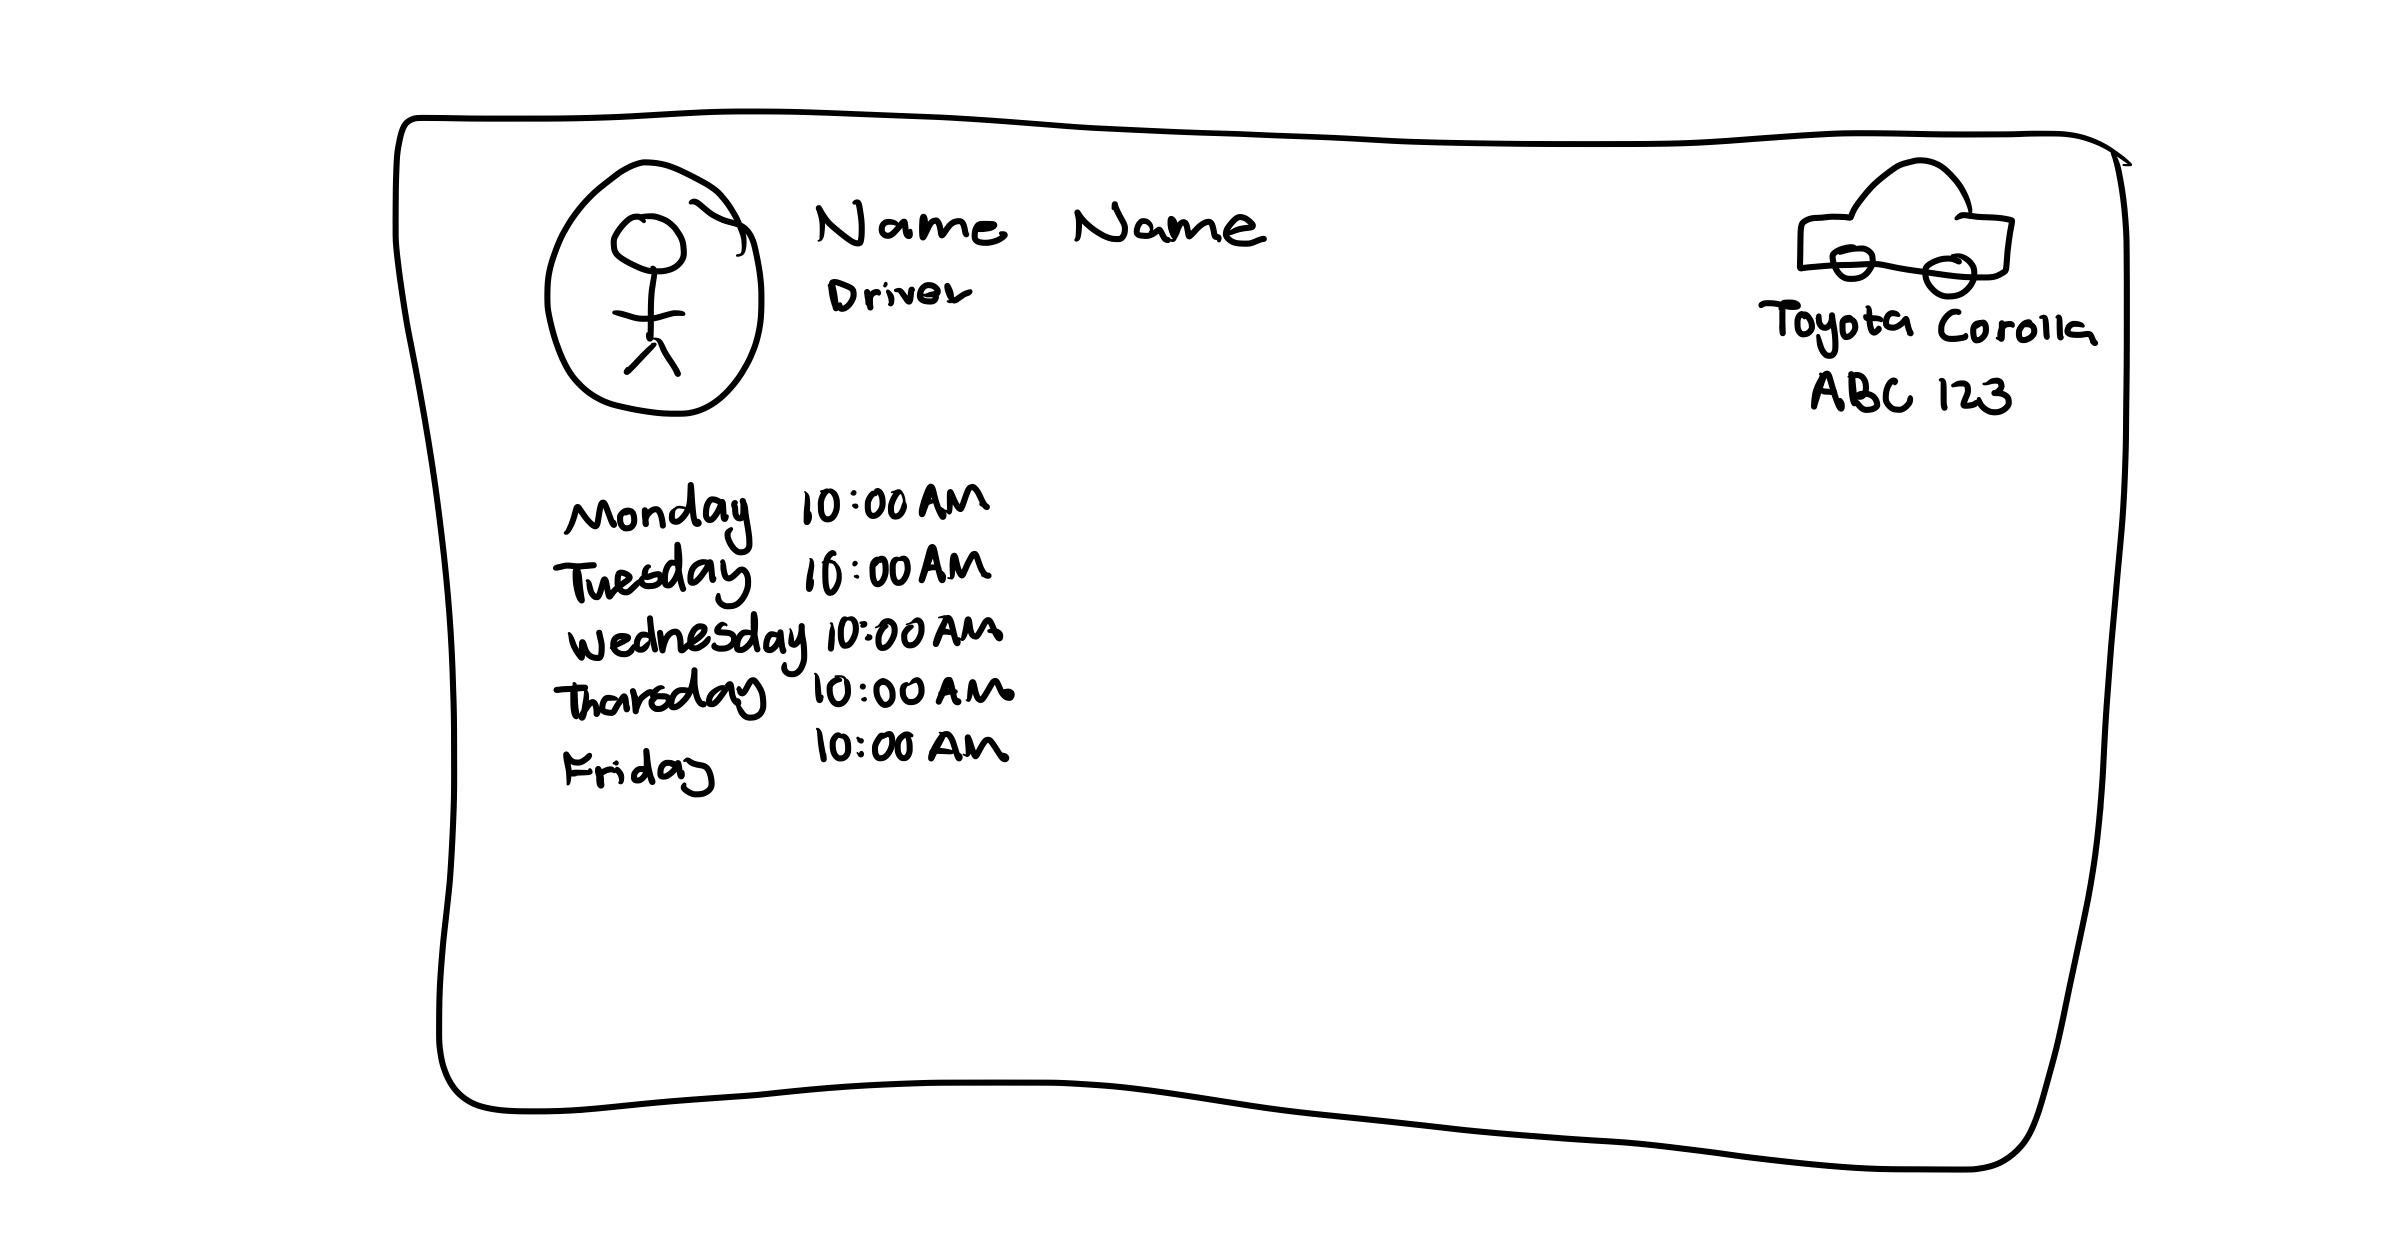 Name Name
Driver
Toyota Corolla
ABC 123
Monday 10:00 AM
Tuesday 10:00 AM
Wednesday 10:00 AM
Thursday 10:00 AM
Friday 10:00 AM